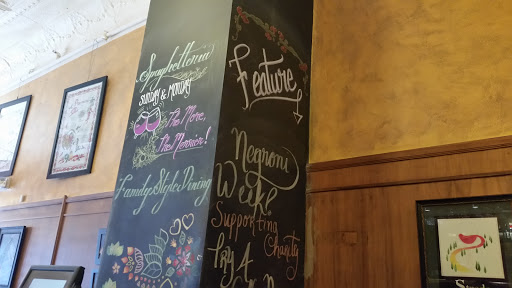 Spaghetteria
SUNDAY & MONDAY
The More,
The Merrier!
Family Style Dining
Feature
Negroni
Week
Supporting
Charity
Try A